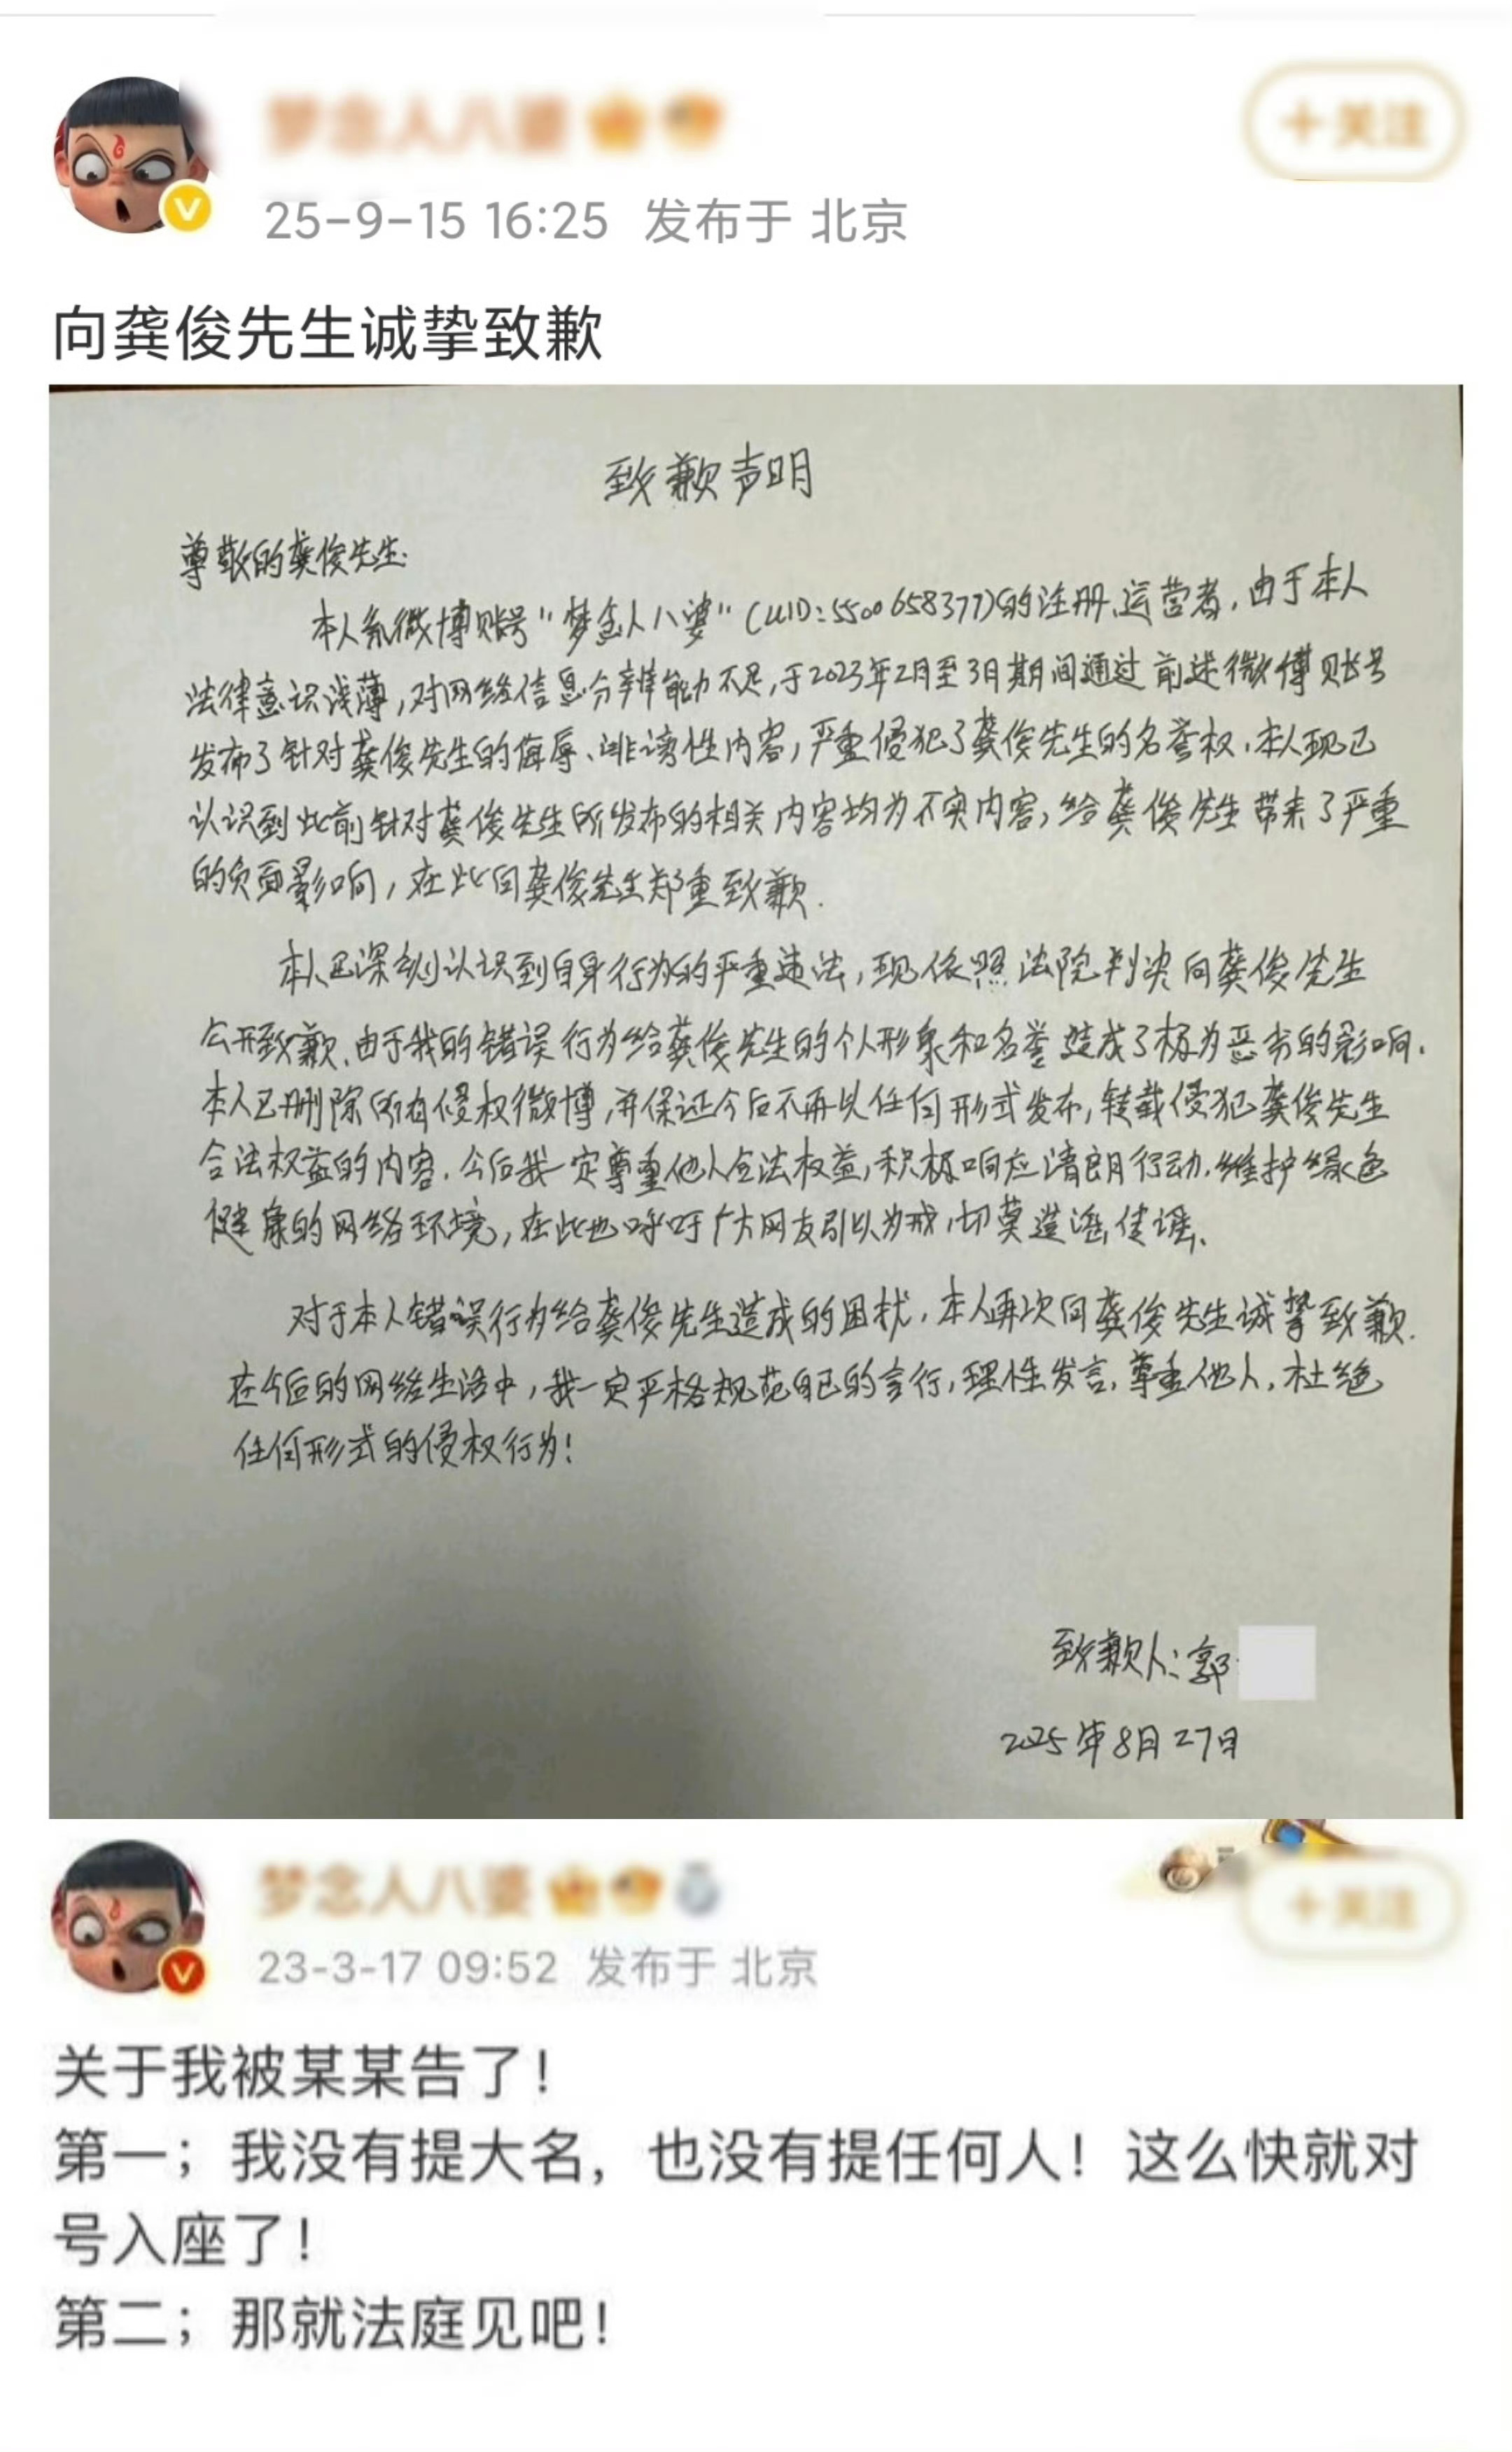 梦念人八婆
+关注
25-9-15 16:25 发布于 北京
向龚俊先生诚挚致歉
致歉声明
尊敬的龚俊先生:
本人系微博账号“梦念人八婆”(UID:5500658377)的注册、运营者,由于本人
法律意识浅薄,对网络信息分辨能力不足,于2023年2月至3月期间通过前述微博账号
发布了针对龚俊先生的侮辱、诽谤性内容,严重侵犯了龚俊先生的名誉权,本人现已
认识到此前针对龚俊先生所发布的相关内容均为不实内容,给龚俊先生带来了严重
的负面影响,在此向龚俊先生郑重致歉.
本人已深刻认识到自身行为的严重违法,现依照法院判决向龚俊先生
公开致歉、由于我的错误行为给龚俊先生的个人形象和名誉造成了极为恶劣的影响.
本人已删除所有侵权微博,并保证今后不再以任何形式发布,转载侵犯龚俊先生
合法权益的内容.今后我一定尊重他人合法权益,积极响应清朗行动.维护绿色
健康的网络环境,在此也呼吁广大网友引以为戒,切莫造谣传谣、
对于本人错误行为给龚俊先生造成的困扰,本人再次向龚俊先生诚挚致歉.
在今后的网络生活中,我一定严格规范自己的言行,理性发言,尊重他人,杜绝
任何形式的侵权行为!
致歉人:郭
2025年8月27日
梦念人八婆
+关注
23-3-17 09:52 发布于 北京
关于我被某某告了!
第一;我没有提大名,也没有提任何人!这么快就对
号入座了!
第二;那就法庭见吧!